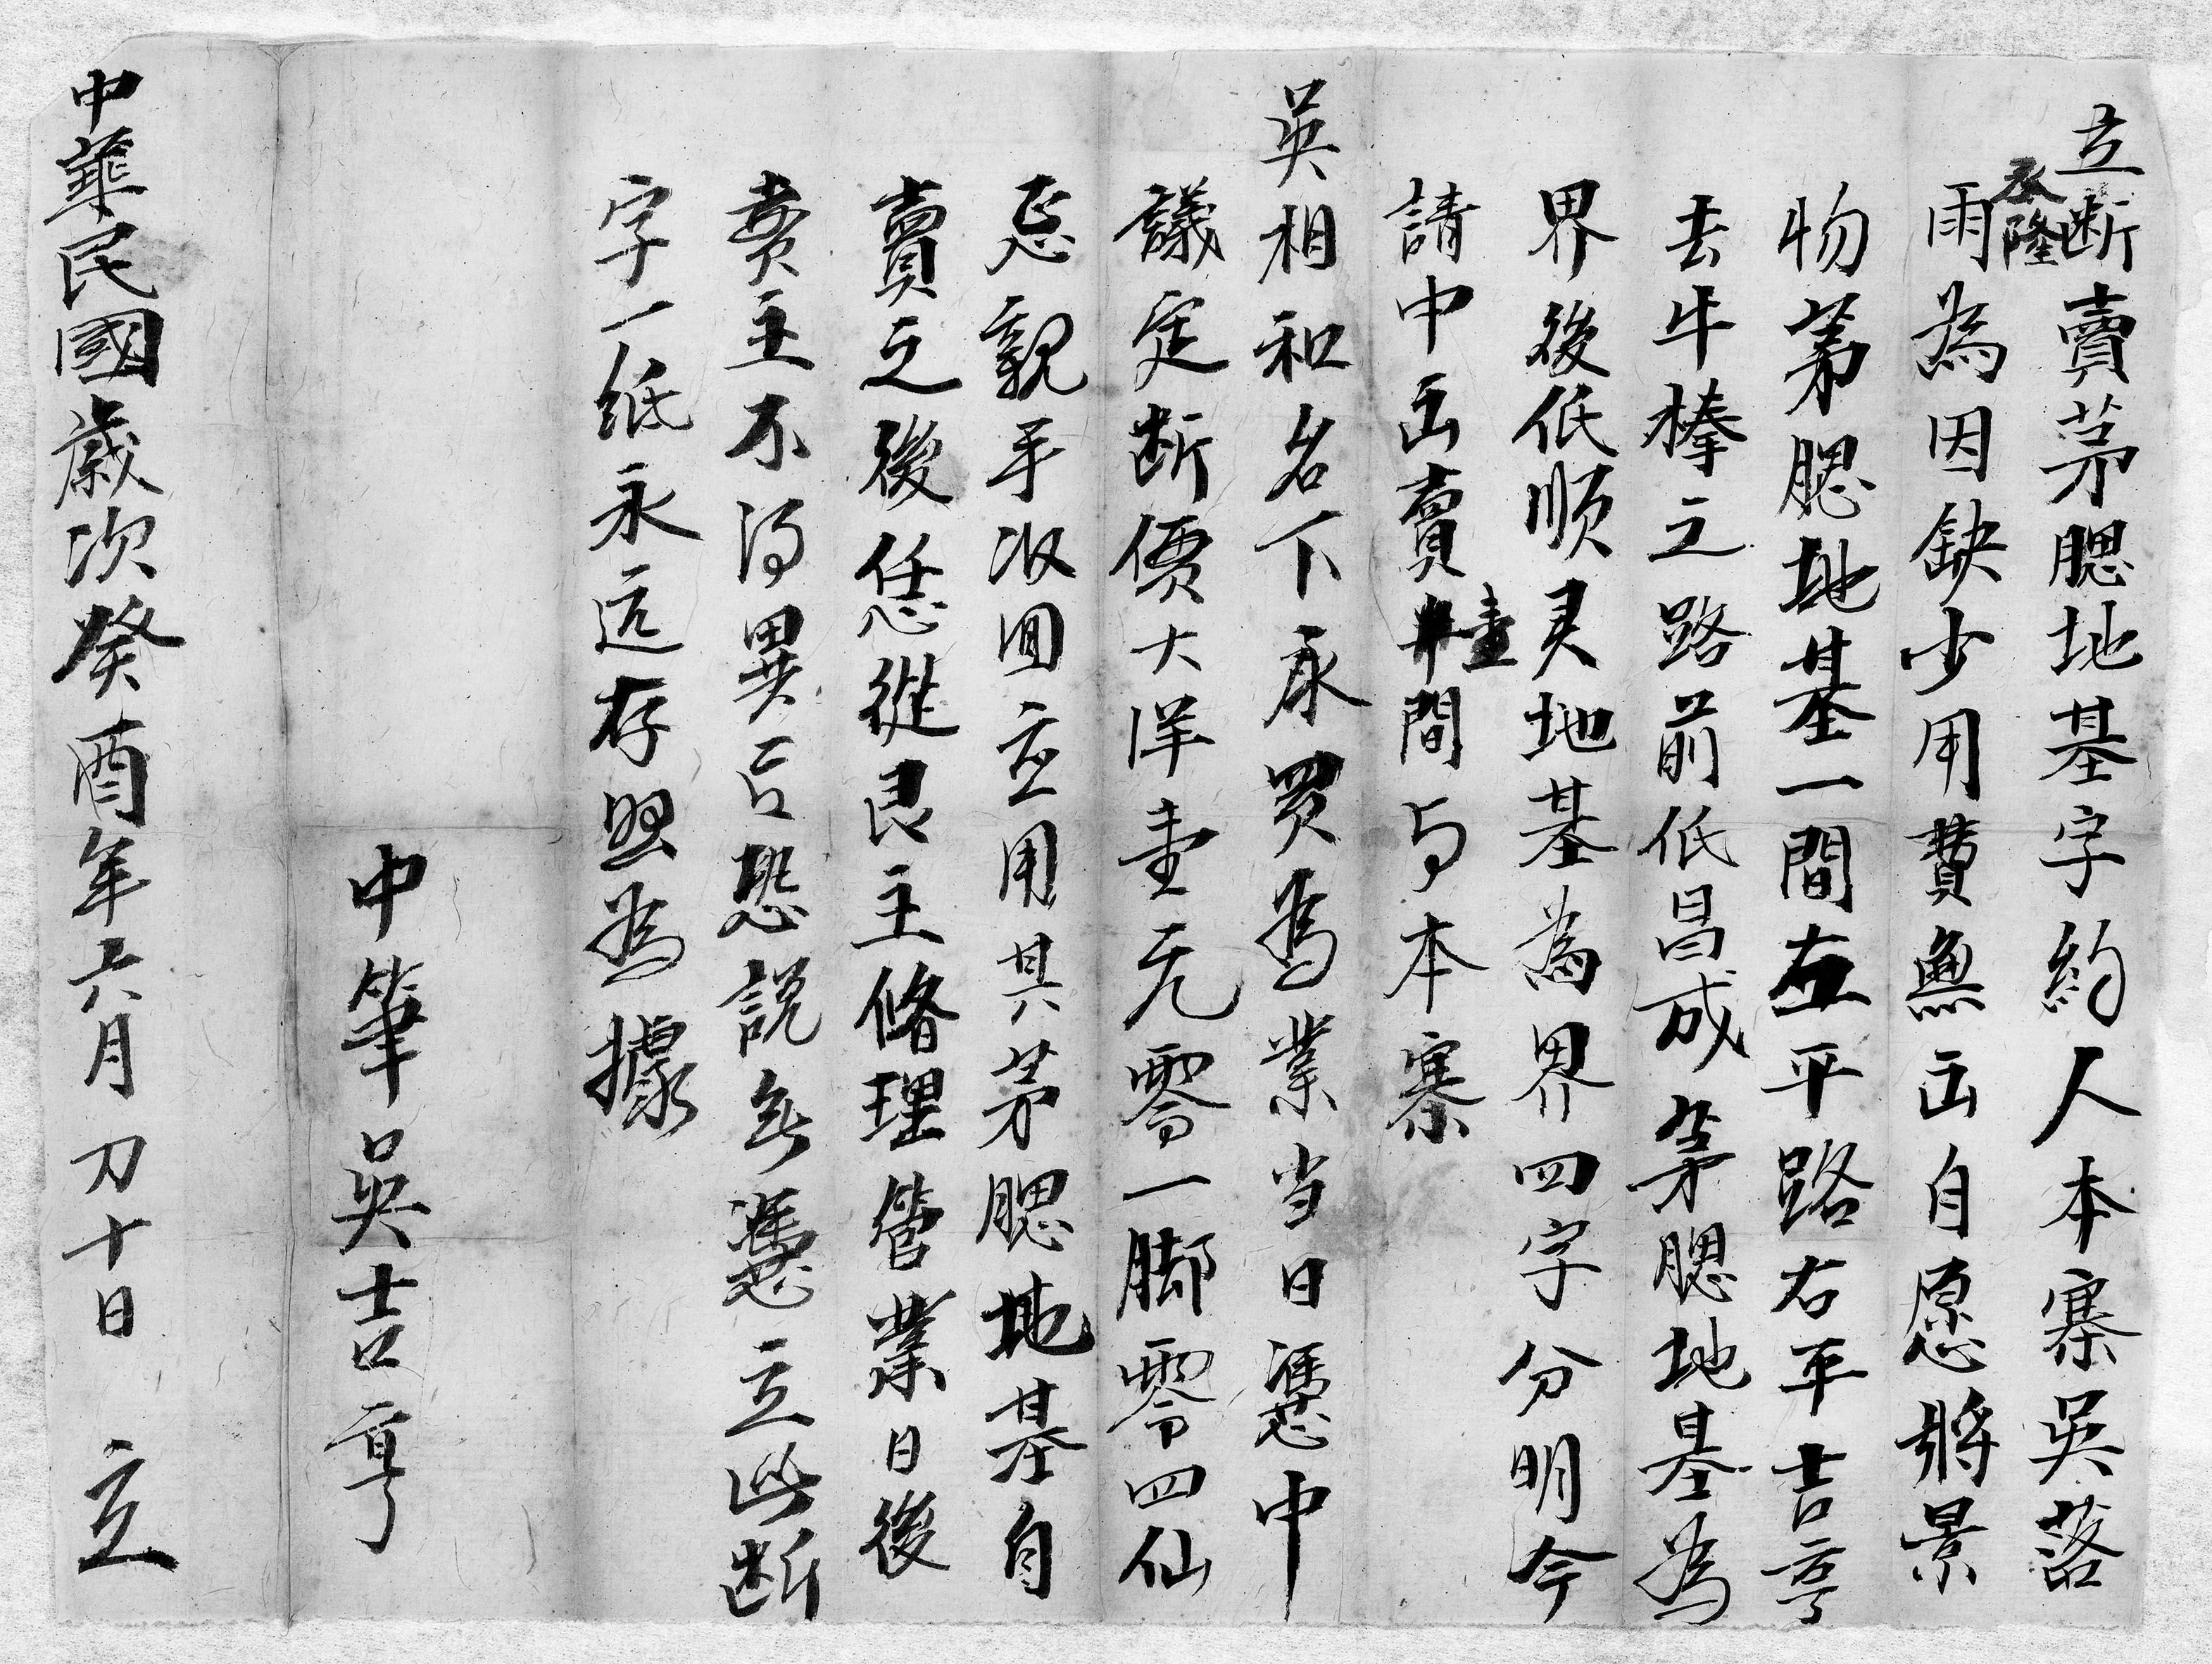 立断賣茅腮地基字約人本寨吳落
丞隆
雨為因缺少用費無出自愿將景
物茅腮地基一間左平路右平吉亨
去牛棬之路前低昌成茅腮地基為
界後低順灵地基為界四字分明今
請中出賣壹間与本寨
吳相和名下承買為業当日憑中
議定断價大洋壹元零一脚零四仙
忘親手收囬立用其茅腮地基自
賣之後恁從艮主修理管業日後
賣主不淂異言恐說無憑立此断
字一纸永远存照為據
中筆吳吉亨
中華民國歲次癸酉年六月初十日 立